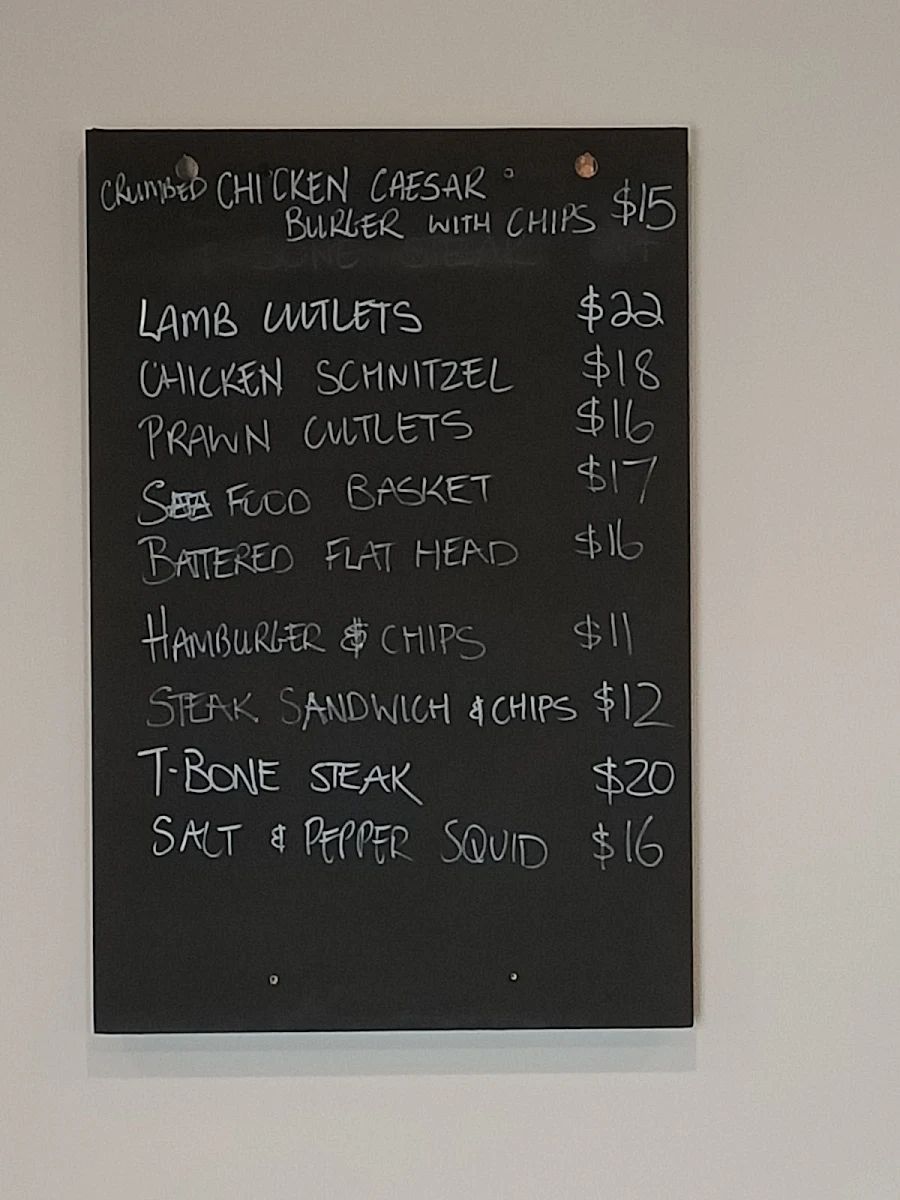 CRUMBED CHICKEN CAESAR
BURGER WITH CHIPS $15
LAMB CUTLETS $22
CHICKEN SCHNITZEL $18
PRAWN CUTLETS $16
SEA FOOD BASKET $17
BATTERED FLAT HEAD $16
HAMBURGER & CHIPS $11
STEAK SANDWICH & CHIPS $12
T-BONE STEAK $20
SALT & PEPPER SQUID $16